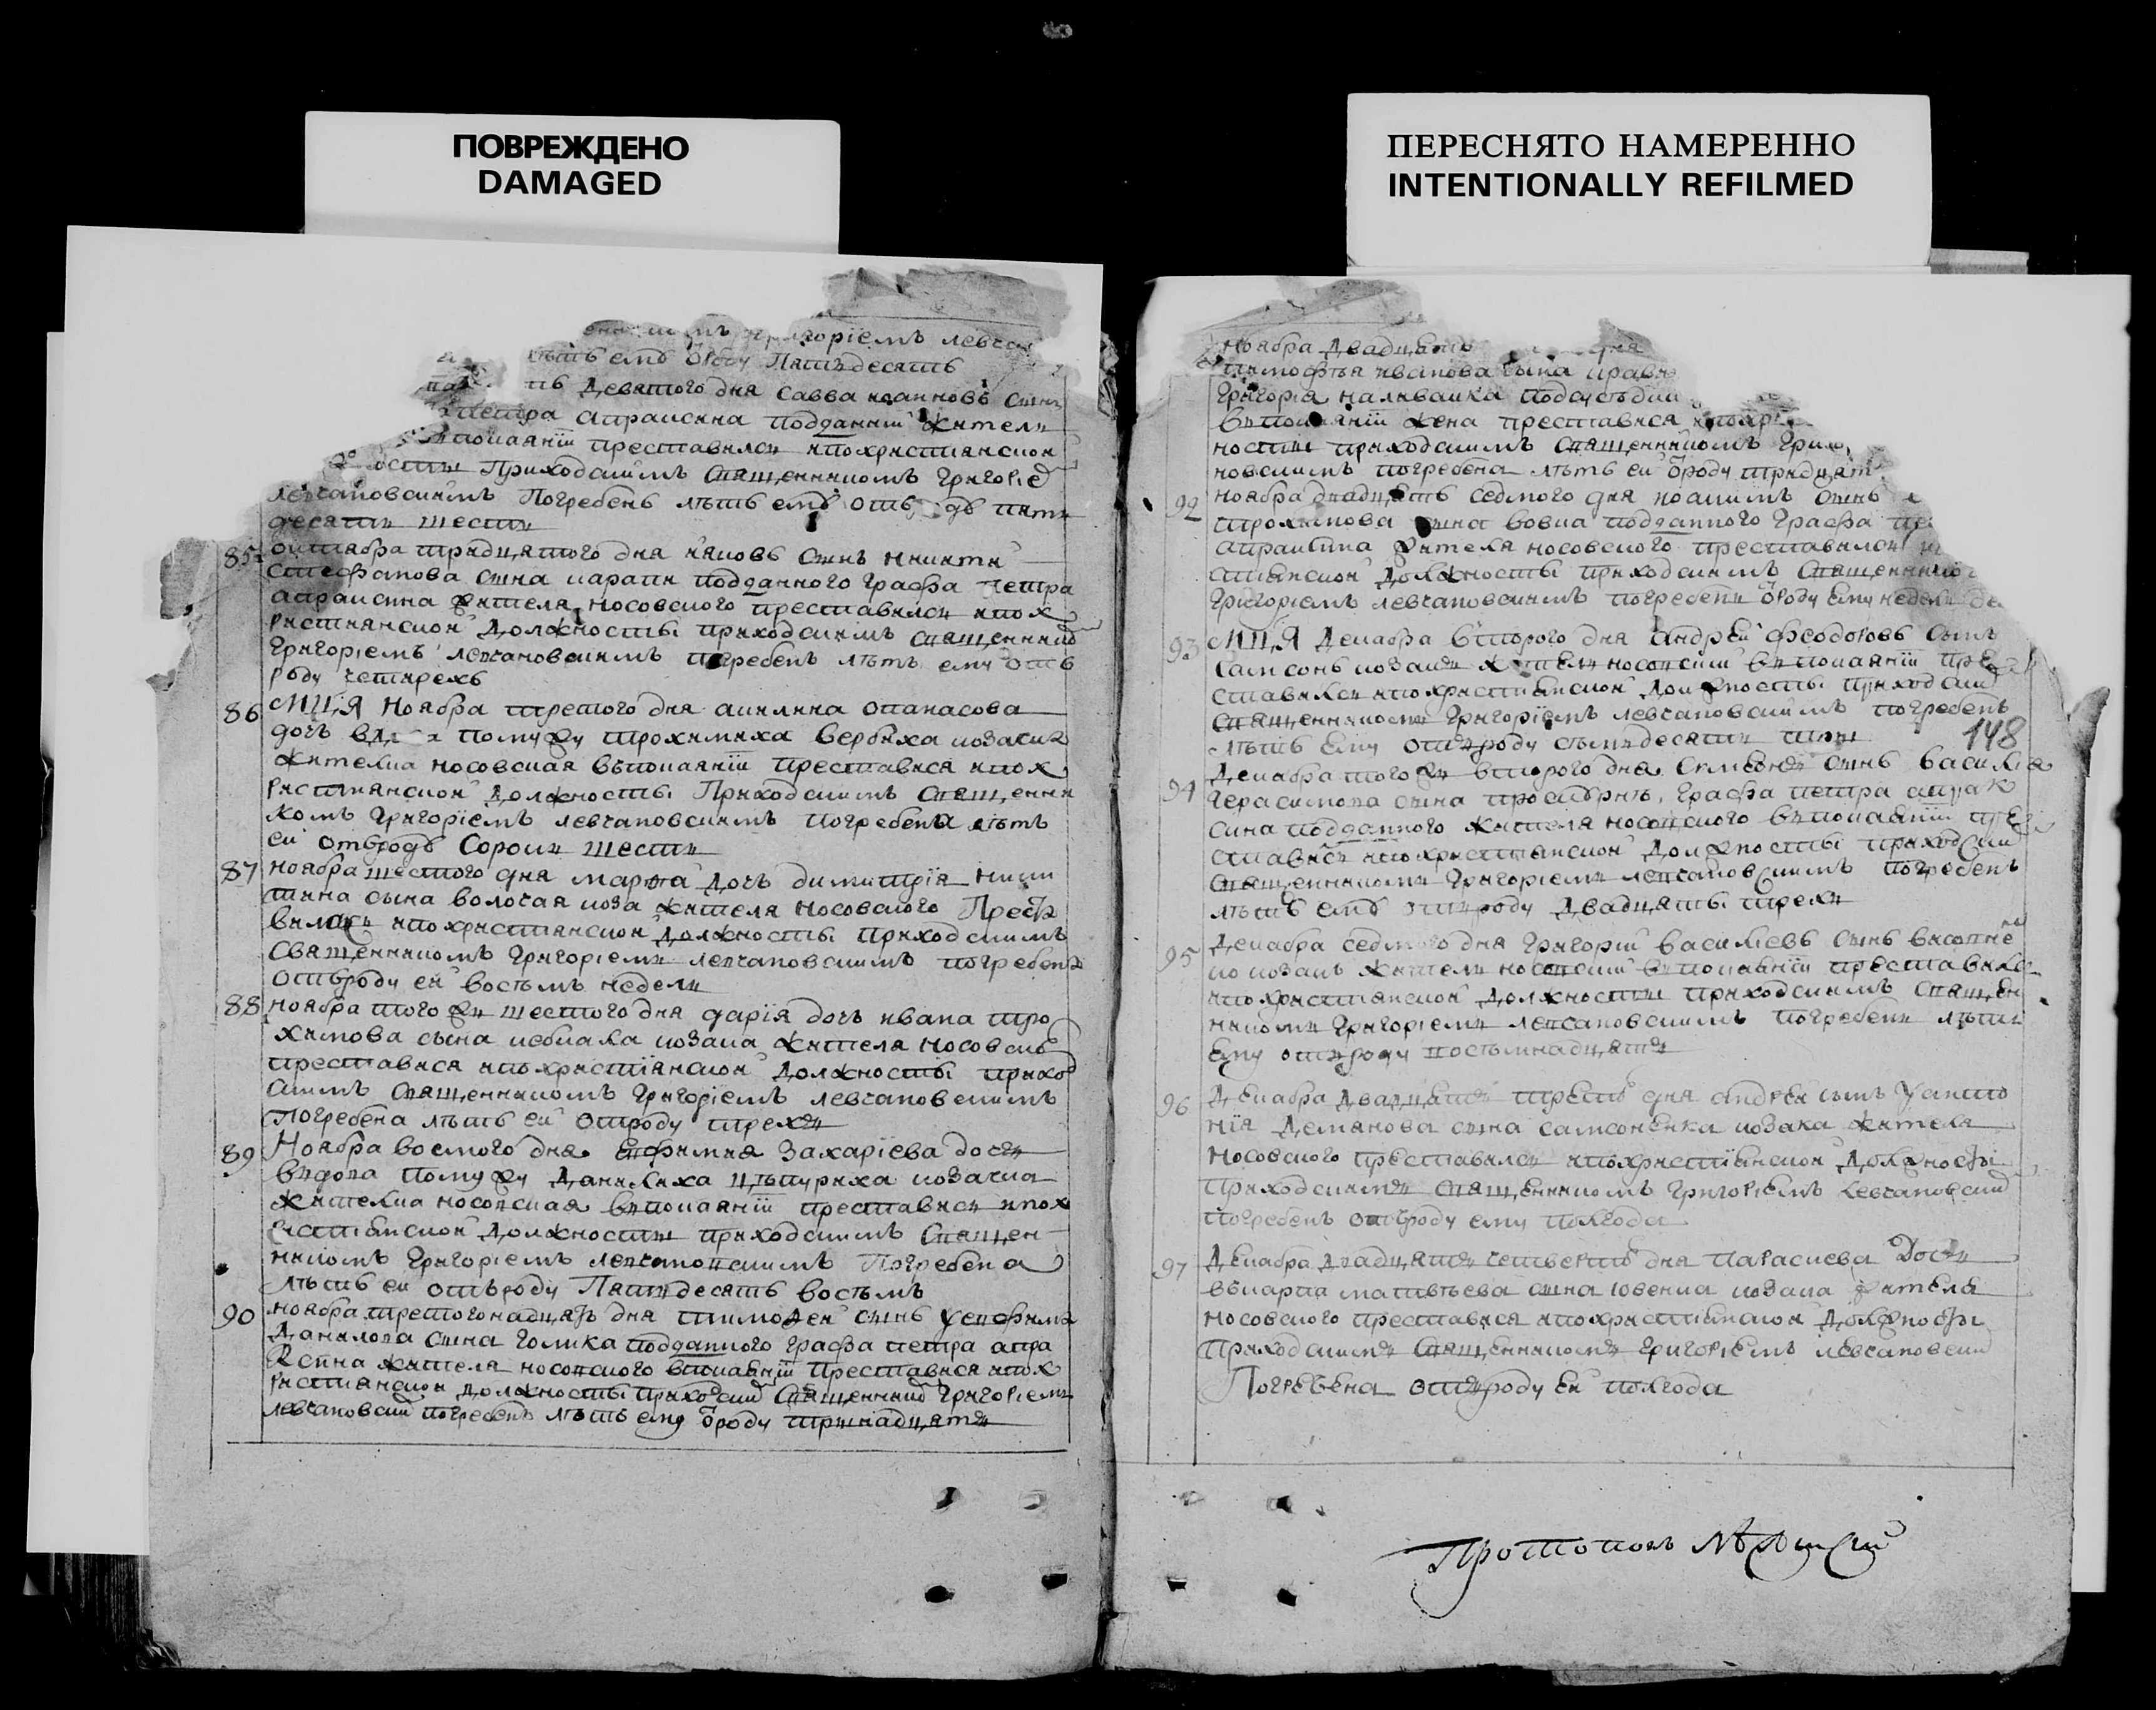 ПОВРЕЖДЕНО
DAMAGED
ПЕРЕСНЯТО НАМЕРЕННО
INTENTIONALLY REFILMED
григоріемъ левча
лѣтъ емꙋ ѿроду Пятъдесятъ
Девятого дня савва іоанновъ синъ
петра апраксина подданній жители
впокаяніи преставился ипохристиянской
ности Приходскимъ Священникомъ Григорие
левчановскимъ Погребенъ лѣтъ емꙋ отъ родꙋ пяти
десяти шести
85 октабра тридцятого дня яковъ синъ никити
стефанова сина карапи подданного графа петра
апраксина жителя носовского преставился ипох
ристиянской должности приходскимъ священнико
Григоріемъ левчановскимъ погребенъ лѣтъ ему отъ
роду четирехъ
86 мц҃я Ноября третого дня акилина опанасова
дочъ вд помужу трохимиха вербиха козачка
жителка носовская въпокаяніи преставися ипох
ристиянской должности Приходскимъ священни
комъ Григоріемъ левчановскимъ погребена лѣтъ
ей отъродꙋ Сорокъ шести
87 ноября шестого дня марѳа дочъ димитрія ники
тина сина волочая коза жителя носовского Преста
вилась ипохристиянской должности приходскимъ
Священникомъ Григоріемъ левчановскимъ погребена
отъроду ей восѣмъ недели
88 ноября того жъ шестого дня дарія дочъ ивана тро
химова сина козака жителя носовско
преставися ипохристіянской должности приход
скимъ священникомъ Григоріемъ левчановскимъ
Погребена лѣтъ ей отроду трехъ
89 Ноября восмого дня Евфимия Захаріева дочъ
въдова помужу Данилиха цѣпуриха козачка
жителка носовская въпокаяніи преставись ипох
ристиянской должности приходскимъ Священ
никомъ Григоріемъ левчановскимъ Погребена
лѣтъ ей отъроду Пятъдесятъ восѣмъ
90 ноября третогонадцять дня тимоѳей синъ
Данилова сина голика подданного графа петра апра
ксина жителя носовского впокаяніи Преставися ипох
ристиянской должности приходски Священнико Григоріемъ
левчановски погребенъ лѣтъ ему ѿроду тринадцять
ноября Двадцять дня
тимофѣя иванова сина
Григорія наливайка подсусѣдки
въпокаяніи жена преставися ипохри
ности приходскимъ священникомъ Григо
новскимъ погребена лѣтъ ей ѿроду тридцят
92 ноября двадцять седмого дня иоакимъ синъ
трохимова сина вовка подданного Графа пе
апраксина жителя носовского преставился
стиянской должности приходскимъ священнико
Григоріемъ левчановскимъ погребенъ ѿроду ему недель де
93 мц҃я Декабра второго дня андрей феодоровъ синъ
самсонъ козакъ жителъ носовскій въпокаяніи пре
ставился ипохристиянской должности приходски
священникомъ Григоріемъ левчановскимъ погребенъ
лѣтъ ему отъроду сѣмъдесятъ
148
94 Декабра того жъ второго дня Симеонъ синъ василія
герасимова сина Графа петра апрак
сина подданного жителя носовского въпокаяніи пре
ставись ипохристиянской должности приходски
священникомъ Григоріемъ левчановскимъ погребенъ
лѣтъ емꙋ отъроду двадцяти трехъ
95 Декабра седмого дня Григорій василіевъ синъ
козакъ жителъ носовскій въпокаяніи преставилс
ипохристиянской должности приходскимъ священ
никомъ Григоріемъ левчановскимъ погребенъ лѣтъ
ему отъроду восѣмнадцятъ
96 Декабра двадцятъ трето дня андрей синъ
нія Демянова сина самсоненка козака жителя
носовского преставился ипохристіянской должности
Приходскимъ священникомъ Григоріемъ левчановски
погребенъ отъроду ему полгода
97 Декабра двадцятъ четверто дня Параскева Дочъ
матвѣева сина ювенка козака жителя
носовского преставися ипохристиянской должности
Приходскимъ священникомъ Григоріемъ левчановски
Погребена отъроду ей полгода
Протопопъ